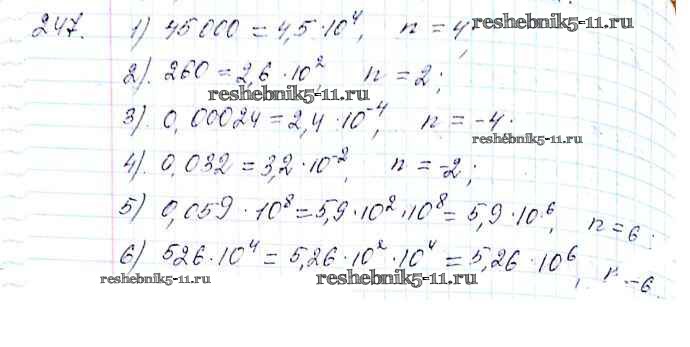 247. 1) 45000 = 4,5·10⁴, n = 4, reshebnik5-11.ru
2). 260 = 2,6·10², n = 2;
reshebnik5-11.ru
3). 0,00024 = 2,4·10⁻⁴, n = -4.
reshebnik5-11.ru
4). 0,032 = 3,2·10⁻², n = -2;
5) 0,059·10⁸ = 5,9·10²·10⁸ = 5,9·10⁶, n = 6.
6) 526·10⁴ = 5,26·10²·10⁴ = 5,26·10⁶, n - 6.
reshebnik5-11.ru reshebnik5-11.ru